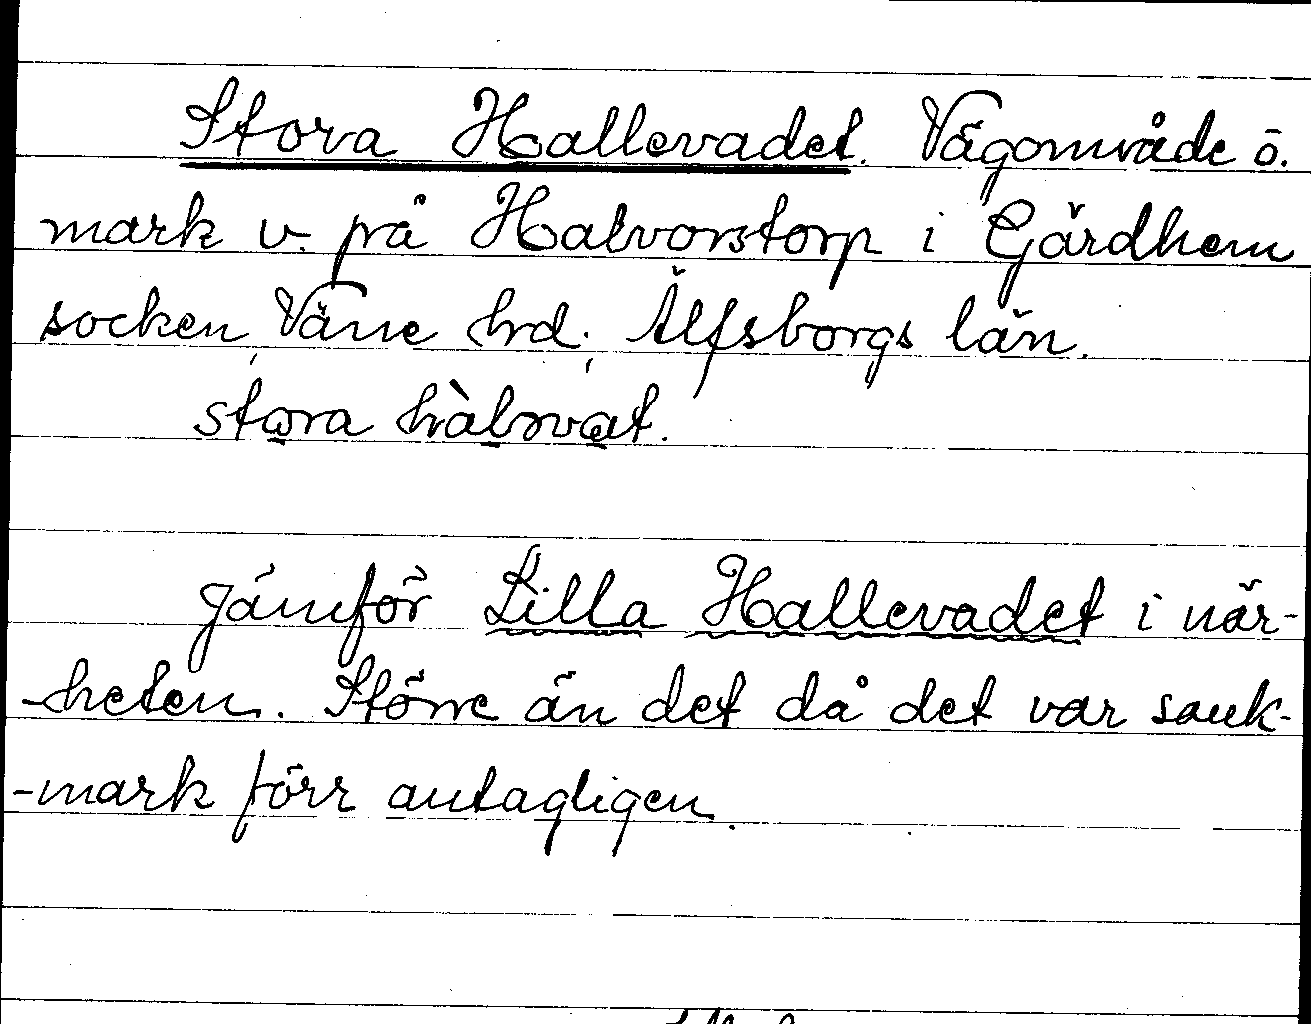 Stora Hallevadet. Vägområde o.
mark v. på Halvorstorp i Gärdhem
socken, Väne hrd., Älfsborgs län.
stora
Jämför Lilla Hallevadet i när-
-heten. Större än det då det var sank-
-mark förr antagligen.